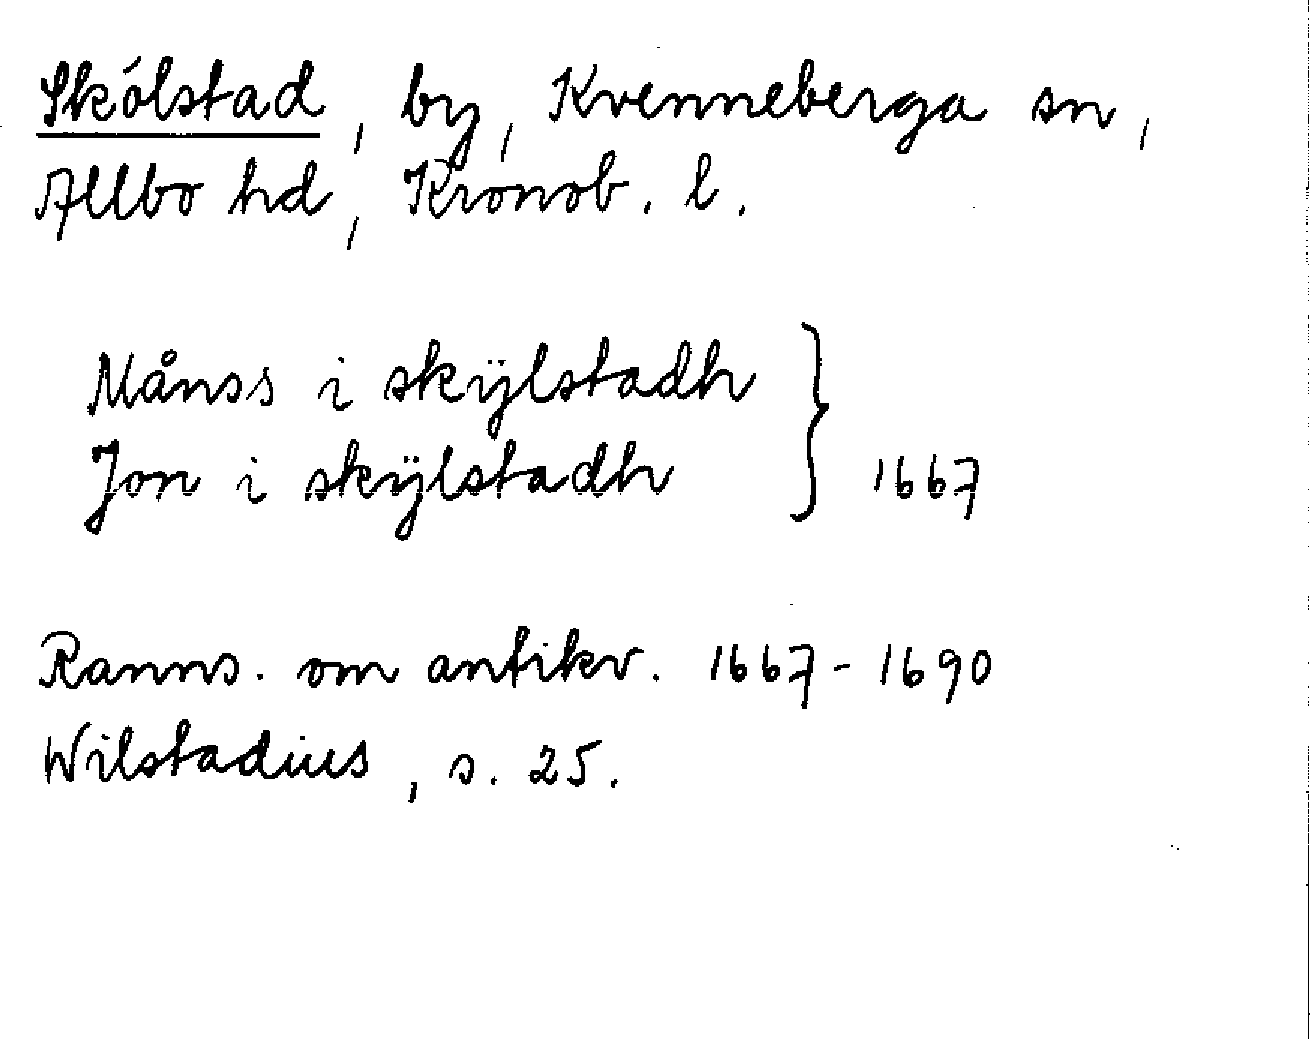 Skólstad, by, Kvenneberga sn,
Allbo hd, Kronob. l.
Månss i skÿlstadh
Jon i skÿlstadh } 1667
Ranns. om antikv. 1667-1690
Wilstadius, s. 25.